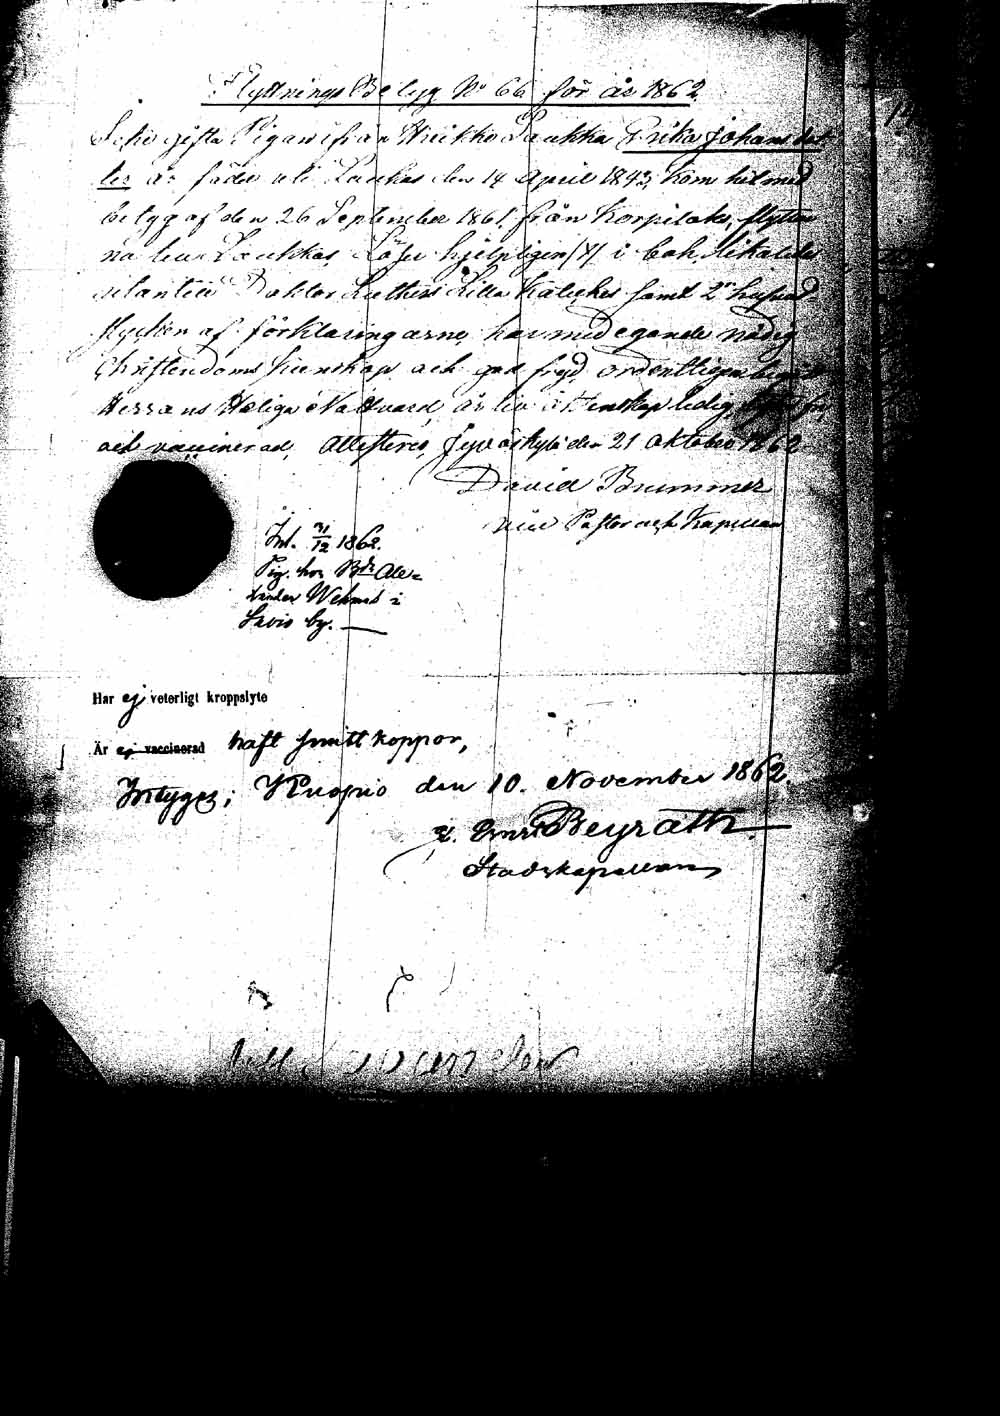 Flyttnings Betyg No 66 för år 1862
gifta Pigan ifrån Heikko Laukka Erika Johansdot
ter är född uti Laukas den 14 April 1843, kom hit med
betyg af den 26 September 1861, från Korpilaks, flyttar
nu Laukkas, Läser hjelpligen i bok,
Doktor Lutheri Lilla Kateches samt 2
stycken af förklaringarne, har med egande nödig
Christendoms kunskap och god frejd, ordentligen begått
Herrans Heliga Nattvard, är till äktenskap ledig,
och vaccinerad, Attesterar, Jyväskylä den 21 Oktober 1862
David Brummer
vice Pastor och Kapellan
Int. 31/12 1862.
Pig. hos Bdn Ale-
xander
Savio by.
Har ej veterligt kroppslyte
Är ej vaccinerad haft smittkoppor,
Intygar; Kuopio den 10. November 1862.
Beyrath
Stadskapellan